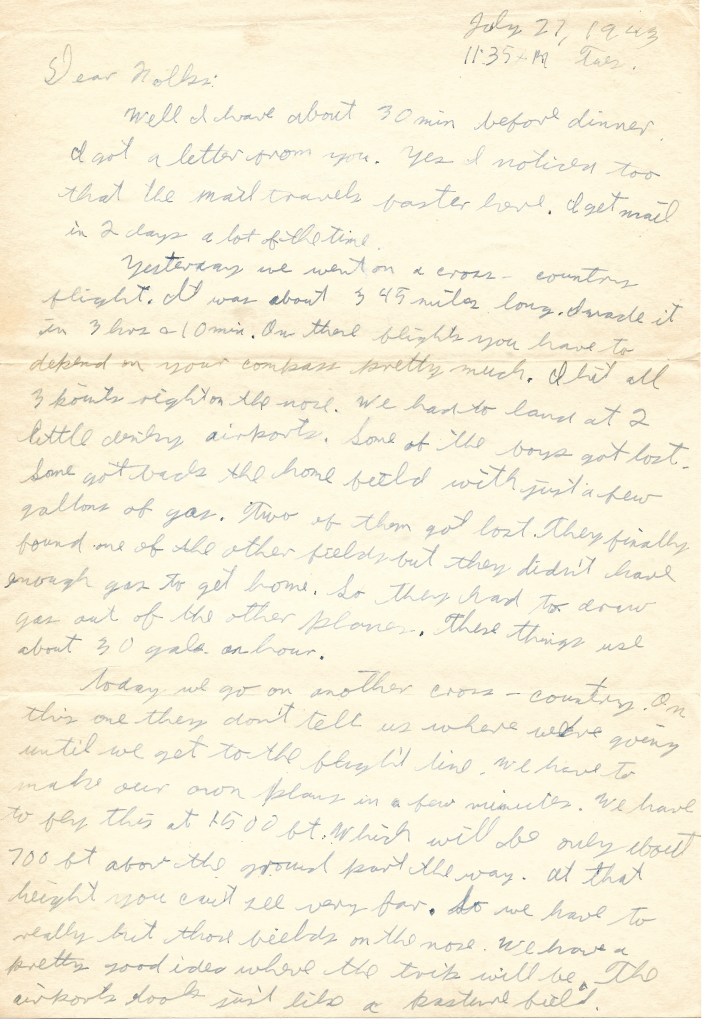 July 27, 1943
11:35 AM Tues.
Dear Folks:
Well I have about 30 min before dinner.
I got a letter from you. Yes I noticed too
that the mail travels faster here. I get mail
in 2 days a lot of the time.
Yesterday we went on a cross-country
flight. It was about 345 miles long. I made it
in 3 hrs & 10 min. On these flights you have to
depend on your compass pretty much. I hit all
3 points right on the nose. We had to land at 2
little airports. Some of the boys got lost.
Some got back the home field with just a few
gallons of gas. Two of them got lost. They finally
found one of the other fields but they didn't have
enough gas to get home. So they had to draw
gas out of the other planes. These things use
about 30 gals an hour.
Today we go on another cross-country. On
this one they don't tell us where we're going
until we get to the flight line. We have to
make our own plans in a few minutes. We have
to fly this at 1500 ft. Which will be only about
700 ft above the ground part the way. At that
height you can't see very far. So we have to
really hit those fields on the nose. We have a
pretty good idea where the trip will be. The
airports look just like a pasture field.